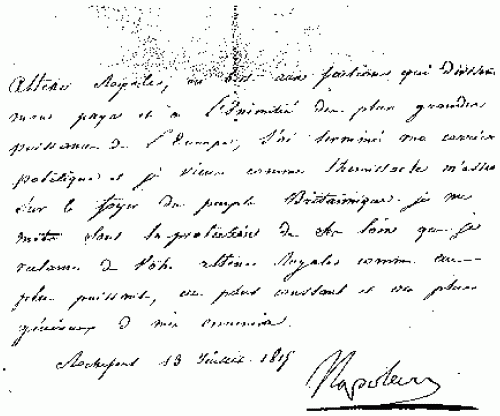 Altesse Royale, en but aux factions qui divisent
mon pays et à l'Inimitié des plus grandes
puissances de l'Europe, j'ai terminé ma carrière
politique et je viens comme Themistocle m'asseoir
sur le foyer du peuple Britannique je me
mets sous la protection de ses loix que je
reclame de Votre altesse Royale comme au
plus puissant, au plus constant et au plus
généreux de mes ennemis.
Rochefort 13 Juillet 1815
Napoleon